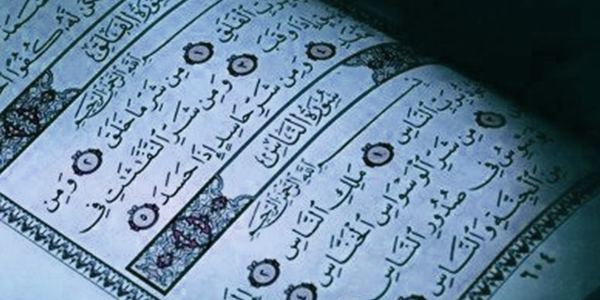 لَّهُۥ كُفُوًا
سُورَةُ الْفَلَقِ
بِسْمِ اللَّهِ الرَّحْمَٰنِ الرَّحِيمِ
الْفَلَقِ ١ مِن شَرِّ مَا خَلَقَ ٢ وَمِن
إِذَا وَقَبَ ٣ وَمِن شَرِّ النَّفَّٰثَٰتِ فِي
٤ وَمِن شَرِّ حَاسِدٍ إِذَا حَسَدَ ٥
سُورَةُ النَّاسِ
بِسْمِ اللَّهِ الرَّحْمَٰنِ الرَّحِيمِ
بِرَبِّ النَّاسِ ١ مَلِكِ النَّاسِ ٢
٣ مِن شَرِّ الْوَسْوَاسِ الْخَنَّاسِ ٤
يُوَسْوِسُ فِي صُدُورِ النَّاسِ
مِنَ الْجِنَّةِ وَالنَّاسِ
٦٠٤